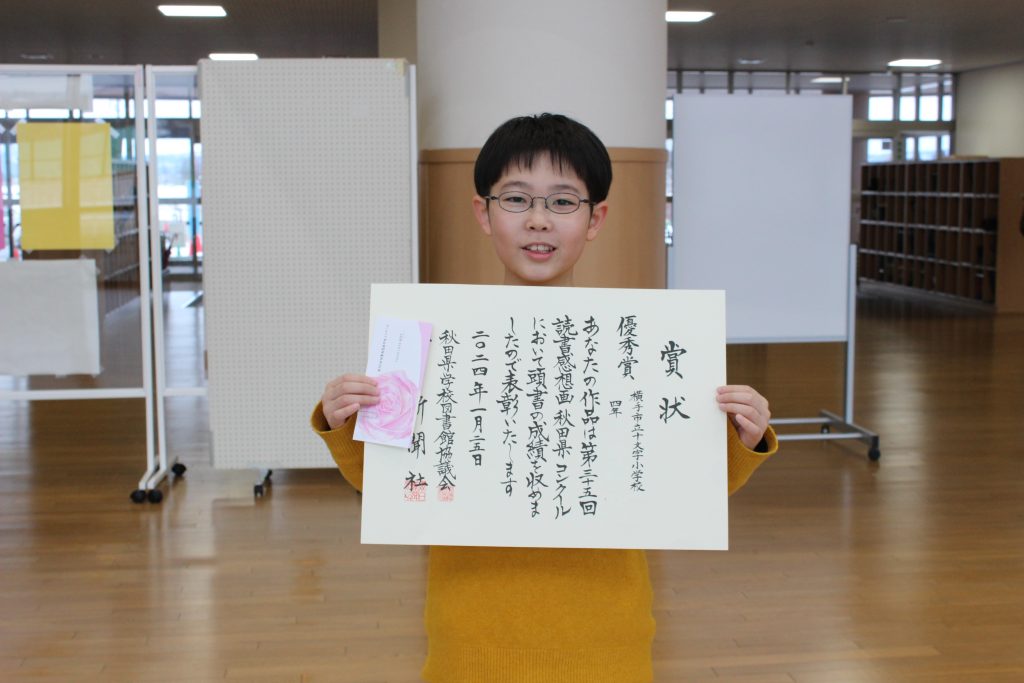 賞状
優秀賞
横手市立十文字小学校
四年
あなたの作品は第三十五回
読書感想画秋田県コンクール
において頭書の成績を収めま
したので表彰いたします
二〇二四年一月二五日
秋田県学校図書館協議会
新聞社